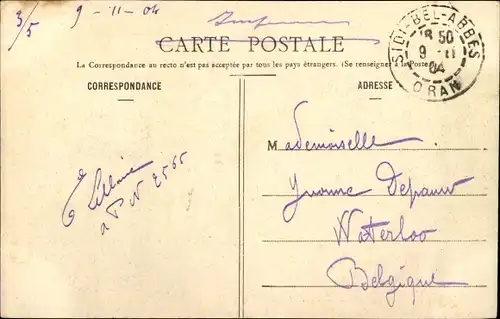 3/5
9-11-04
Imprimé
CARTE POSTALE
La Correspondance au recto n'est pas acceptée par tous les pays étrangers. (Se renseigner à la Poste)
SIDI-BEL-ABBÈS
18 50
9 11
04
ORAN
CORRESPONDANCE
ADRESSE
Mademoiselle
Yvonne Depauw
Waterloo
Belgique
à P N 2565